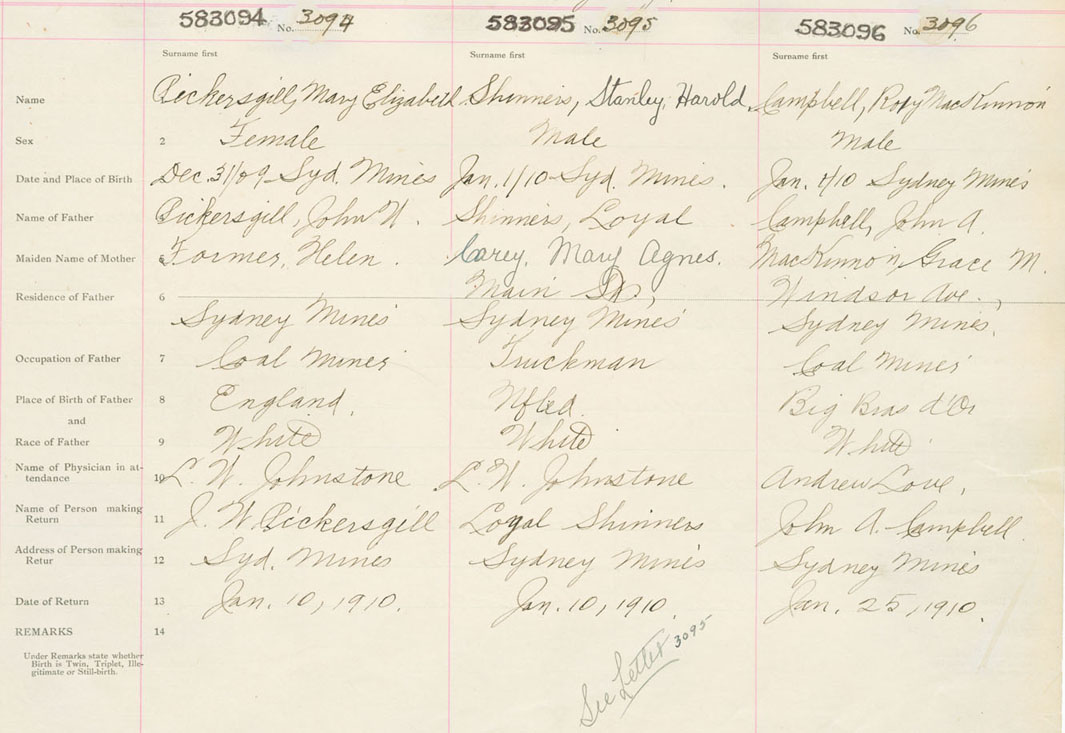 583094 No. 3094 583095 No. 3095 583096 No. 3096
Surname first Surname first Surname first
Name Pickersgill, Mary Elizabeth Shinners, Stanley, Harold Campbell, Rory MacKinnon
Sex 2 Female Male Male
Date and Place of Birth Dec. 31/09 Syd. Mines Jan. 1/10 Syd. Mines. Jan. 1/10 Sydney Mines
Name of Father Pickersgill, John W. Shinners, Loyal Campbell, John A.
Maiden Name of Mother Former, Helen. Carey, Mary Agnes. MacKinnon, Grace M.
Residence of Father 6 Main St., Windsor Ave.,
Sydney Mines Sydney Mines Sydney Mines.
Occupation of Father 7 Coal Miner Truckman Coal Miner
Place of Birth of Father 8 England. Nfled. Big Bras d'Or
and
Race of Father 9 White White White
Name of Physician in at-
tendance 10 L. W. Johnstone L. W. Johnstone Andrew Love.
Name of Person making
Return 11 J. W. Pickersgill Loyal Shinners John A. Campbell.
Address of Person making
Retur 12 Syd. Mines Sydney Mines Sydney Mines
Date of Return 13 Jan. 10, 1910. Jan. 10, 1910. Jan. 25, 1910.
REMARKS 14
Under Remarks state whether
Birth is Twin, Triplet, Ille-
gitimate or Still-birth.
See Letter 3095